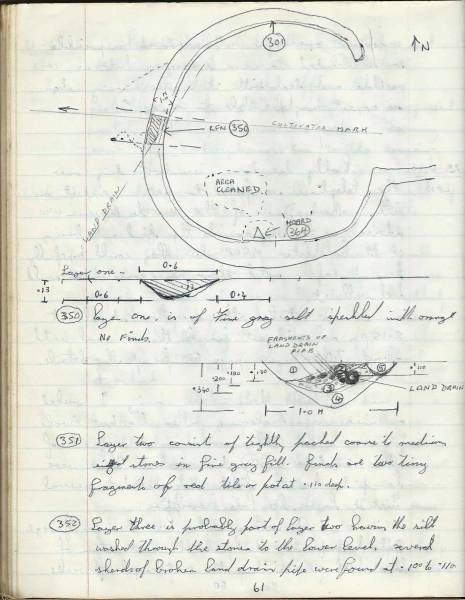 301
↑N
REN 350
CULTIVATOR MARK
LAND DRAIN
AREA CLEANED
HOARD 364
Layer one -
0.6
.13
.13
0.6
0.4
350 Layer one, is of Fine gray silt speckled with orange
No Finds.
FRAGMENTS OF
LAND DRAIN
PIPE
1 2 3 4 5
.340 .200 .180 .130
.110
LAND DRAIN
1.0 M
351 Layer two consist of tightly packed coarse to medium
stones in fine gray fill. Finds are two tiny
fragments of red tile or pot at .110 deep.
352 Layer three is probably part of layer two having the silt
washed through the stones to the lower level, several
sherds of broken land drain pipe were found at .100 to .110
61